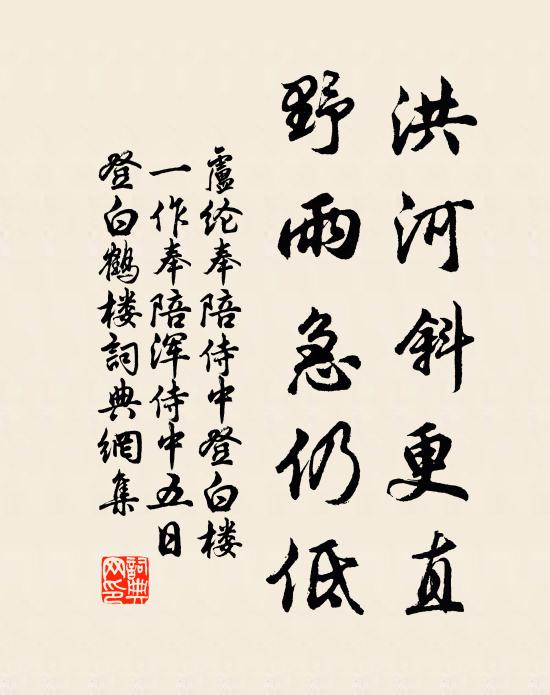 洪河斜更直
野雨急仍低
盧纶奉陪侍中登白楼
一作奉陪浑侍中五日
登白鹤楼詞典網集
詞典网印